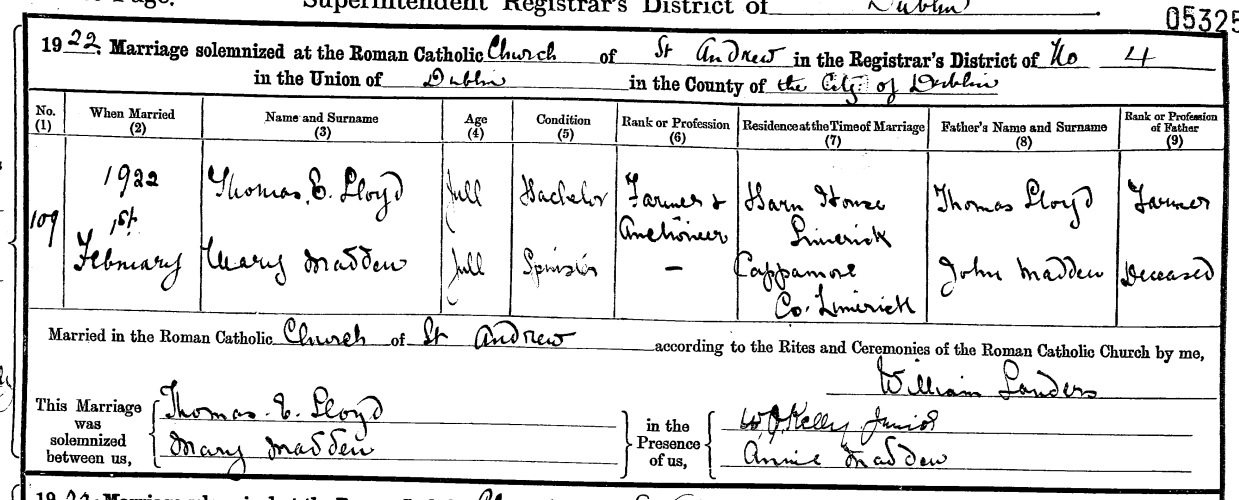 Page.
Superintendent Registrar's District of Dublin
05325
1922. Marriage solemnized at the Roman Catholic Church of St Andrew in the Registrar's District of No 4
in the Union of Dublin in the County of the City of Dublin
No. (1) When Married (2) Name and Surname (3) Age (4) Condition (5) Rank or Profession (6) Residence at the Time of Marriage (7) Father's Name and Surname (8) Rank or Profession of Father (9)
109 1922 1st February
Thomas E. Lloyd Full Bachelor Farmer & Auctioneer House Limerick Thomas Lloyd Farmer
Mary Madden Full Spinster — Cappamore Co. Limerick John Madden Deceased
Married in the Roman Catholic Church of St Andrew according to the Rites and Ceremonies of the Roman Catholic Church by me,
William Landers
This Marriage was solemnized between us,
Thomas E. Lloyd
Mary Madden
in the Presence of us,
W. J. Kelly Junior
Annie Madden
1922. Marriage solemnized at the Roman Catholic